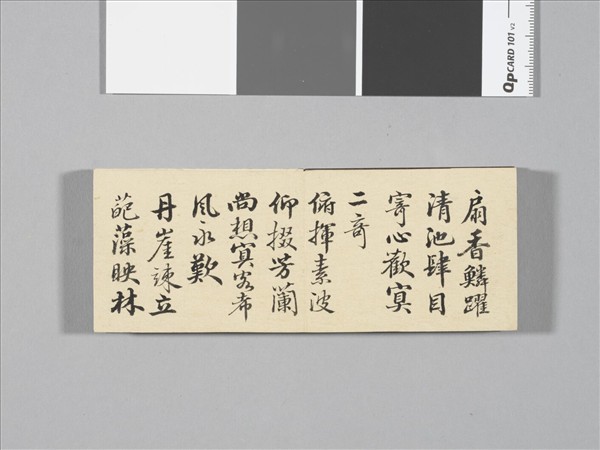 扇香鱗躍
清池肆目
寄心歡寞
二奇
俯揮素波
仰掇芳蘭
尚想冥客希
風永歎
丹崖竦立
葩藻映林
QPCARD 101 v2